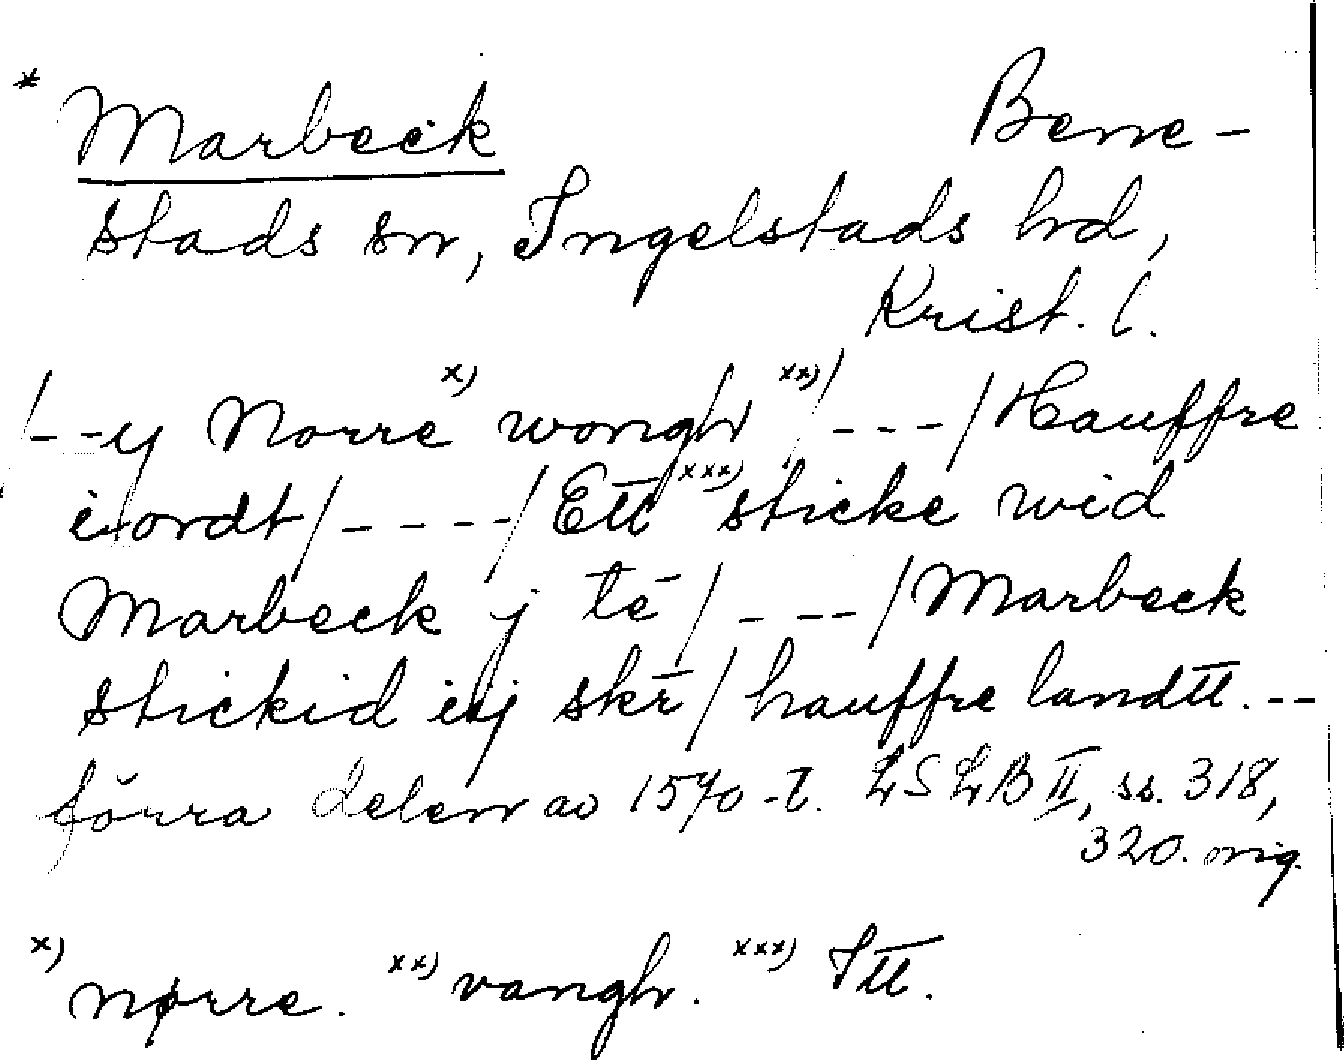 * Marbeck Bene-
stads sn, Ingelstads hd,
Krist. l.
/--y Norre x) wongh xx) /---/ Hauffre
iordt/----/ Ett xxx) sticke wid
Marbeck j tē /---/ Marbeck
stickid iij skr̄ / hauffre landtt.--
förra delen av 1570-t. LSLB II, ss. 318,
320. orig.
x) nørre. xx) vangh. xxx) Itt.